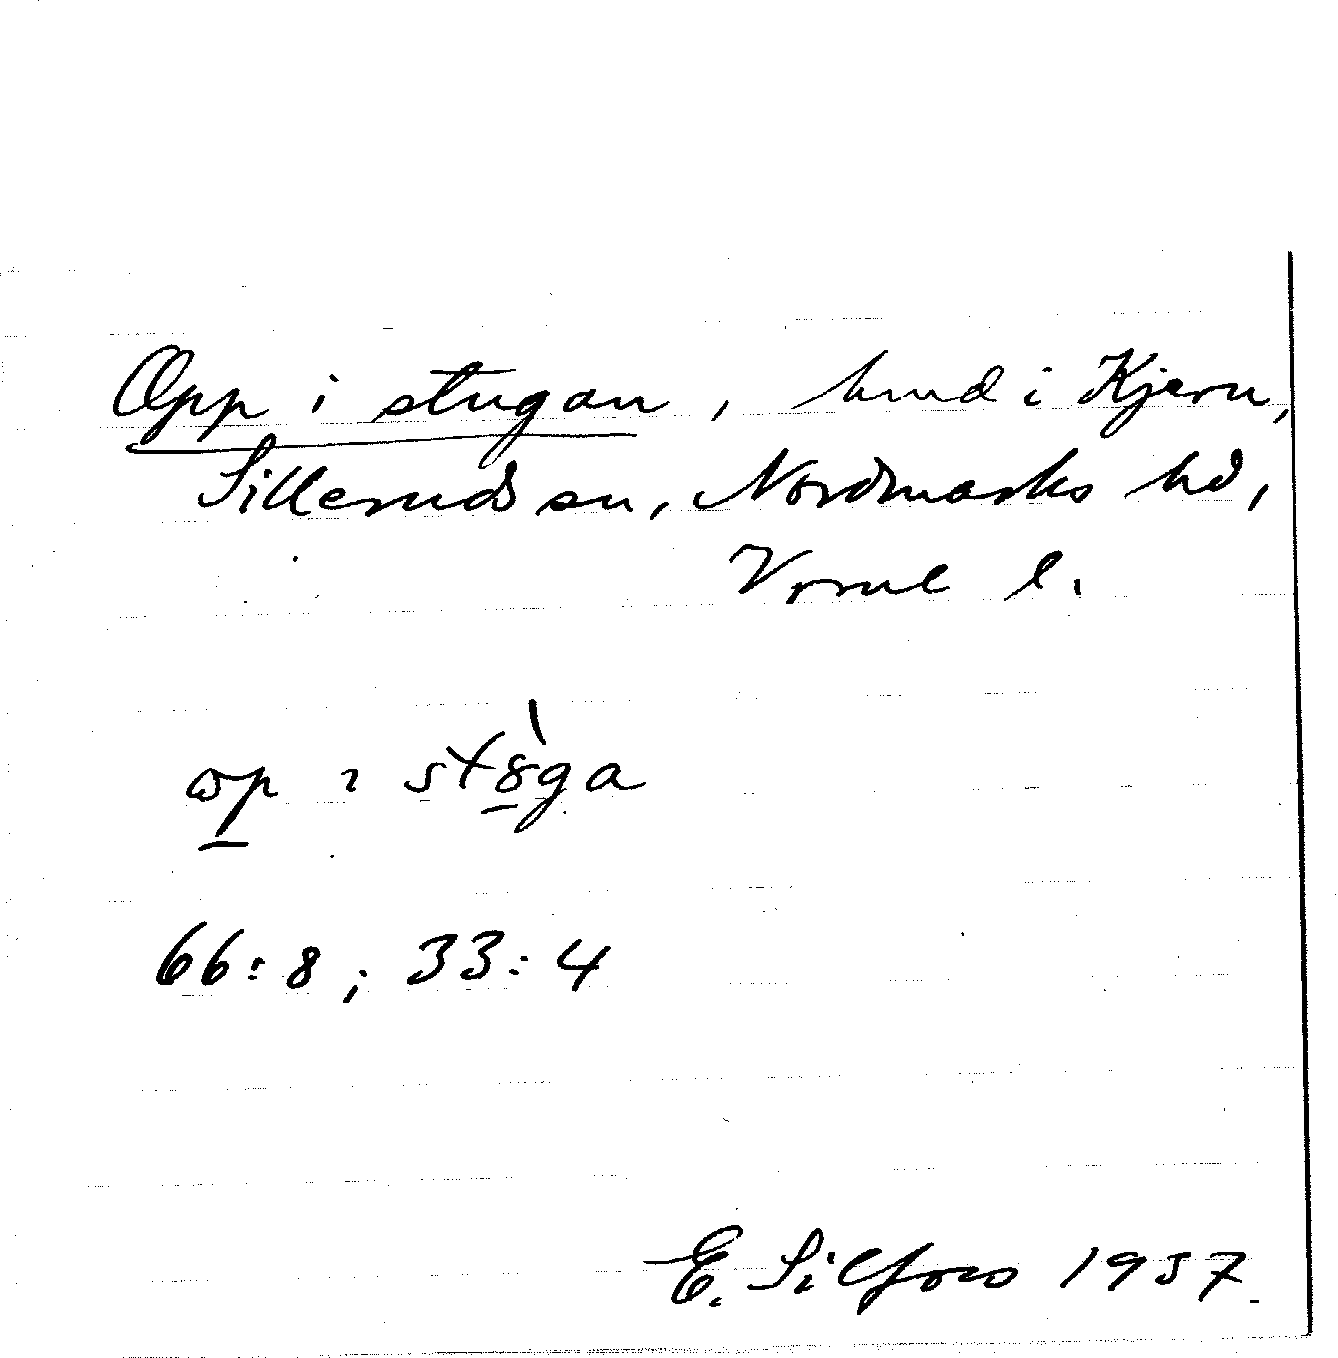 Opp i stugan, hmd i Kjern,
Silleruds sn, Nordmarks hd,
Vrml l.
ɷp ɿ stɣ̀ga
66:8; 33:4
E. Silfors 1957.